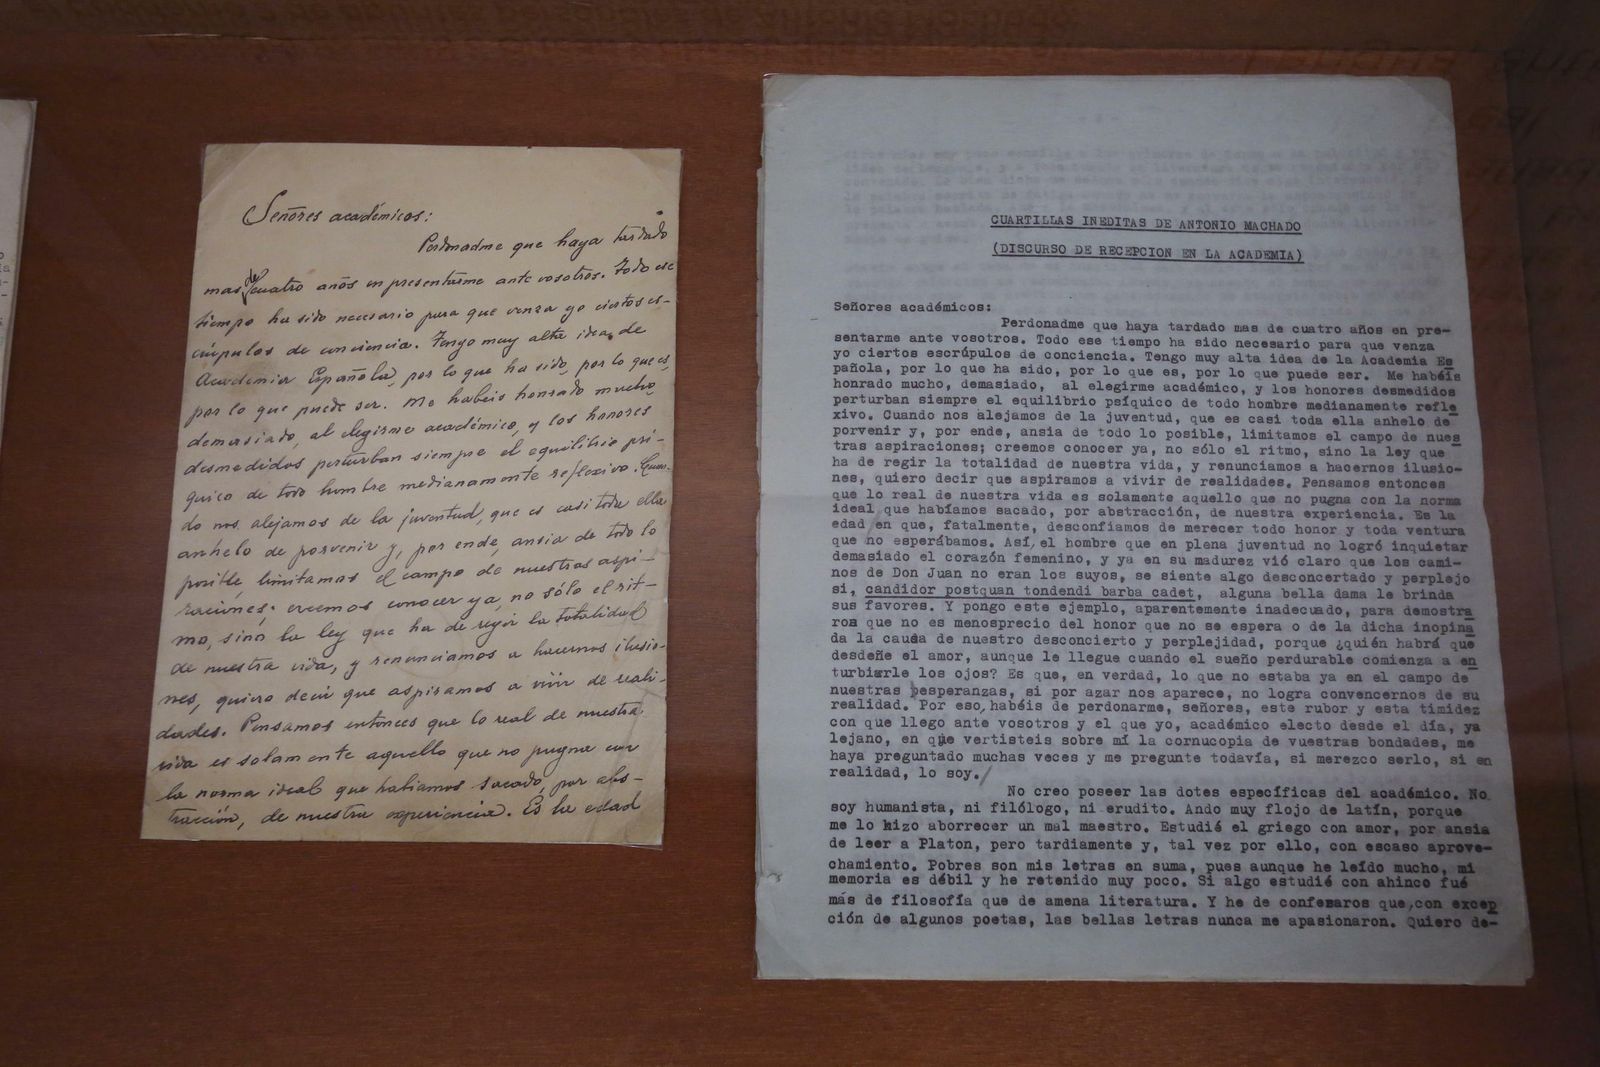 Señores académicos:
Perdonadme que haya tardado
mas de cuatro años en presentarme ante vosotros. Todo ese
tiempo ha sido necesario para que venza yo ciertos es-
crúpulos de conciencia. Tengo muy alta idea de
Academia Española, por lo que ha sido, por lo que es,
por lo que puede ser. Me habéis honrado mucho,
demasiado, al elegirme académico, y los honores
desmedidos perturban siempre el equilibrio psí-
quico de todo hombre medianamente reflexivo. Cuan-
do nos alejamos de la juventud, que es casi toda ella
anhelo de porvenir y, por ende, ansia de todo lo
posible, limitamos el campo de nuestras aspi-
raciones; creemos conocer ya, no sólo el rit-
mo, sino la ley que ha de regir la totalidad
de nuestra vida, y renunciamos a hacernos ilusio-
nes, quiero decir que aspiramos a vivir de reali-
dades. Pensamos entonces que lo real de nuestra
vida es solamente aquello que no pugna con
la norma ideal que habíamos sacado, por abs-
tracción, de nuestra experiencia. Es la edad
CUARTILLAS INEDITAS DE ANTONIO MACHADO
(DISCURSO DE RECEPCION EN LA ACADEMIA)
Señores académicos:
Perdonadme que haya tardado mas de cuatro años en pre-
sentarme ante vosotros. Todo ese tiempo ha sido necesario para que venza
yo ciertos escrúpulos de conciencia. Tengo muy alta idea de la Academia Es
pañola, por lo que ha sido, por lo que es, por lo que puede ser. Me habéis
honrado mucho, demasiado, al elegirme académico, y los honores desmedidos
perturban siempre el equilibrio psíquico de todo hombre medianamente refle
xivo. Cuando nos alejamos de la juventud, que es casi toda ella anhelo de
porvenir y, por ende, ansia de todo lo posible, limitamos el campo de nues
tras aspiraciones; creemos conocer ya, no sólo el ritmo, sino la ley que
ha de regir la totalidad de nuestra vida, y renunciamos a hacernos ilusio-
nes, quiero decir que aspiramos a vivir de realidades. Pensamos entonces
que lo real de nuestra vida es solamente aquello que no pugna con la norma
ideal que habíamos sacado, por abstracción, de nuestra experiencia. Es la
edad en que, fatalmente, desconfiamos de merecer todo honor y toda ventura
que no esperábamos. Así, el hombre que en plena juventud no logró inquietar
demasiado el corazón femenino, y ya en su madurez vió claro que los cami-
nos de Don Juan no eran los suyos, se siente algo desconcertado y perplejo
si, candidor postquan tondendi barba cadet, alguna bella dama le brinda
sus favores. Y pongo este ejemplo, aparentemente inadecuado, para demostra
ros que no es menosprecio del honor que no se espera o de la dicha inopina
da la causa de nuestro desconcierto y perplejidad, porque ¿quién habrá que
desdeñe el amor, aunque le llegue cuando el sueño perdurable comienza a en
turbiarle los ojos? Es que, en verdad, lo que no estaba ya en el campo de
nuestras esperanzas, si por azar nos aparece, no logra convencernos de su
realidad. Por eso, habéis de perdonarme, señores, este rubor y esta timidez
con que llego ante vosotros y el que yo, académico electo desde el día, ya
lejano, en que vertisteis sobre mí la cornucopia de vuestras bondades, me
haya preguntado muchas veces y me pregunte todavía, si merezco serlo, si en
realidad, lo soy./
No creo poseer las dotes específicas del académico. No
soy humanista, ni filólogo, ni erudito. Ando muy flojo de latín, porque
me lo hizo aborrecer un mal maestro. Estudié el griego con amor, por ansia
de leer a Platon, pero tardiamente y, tal vez por ello, con escaso aprove-
chamiento. Pobres son mis letras en suma, pues aunque he leído mucho, mi
memoria es débil y he retenido muy poco. Si algo estudié con ahinco fué
más de filosofía que de amena literatura. Y he de confesaros que, con excep
ción de algunos poetas, las bellas letras nunca me apasionaron. Quiero de-